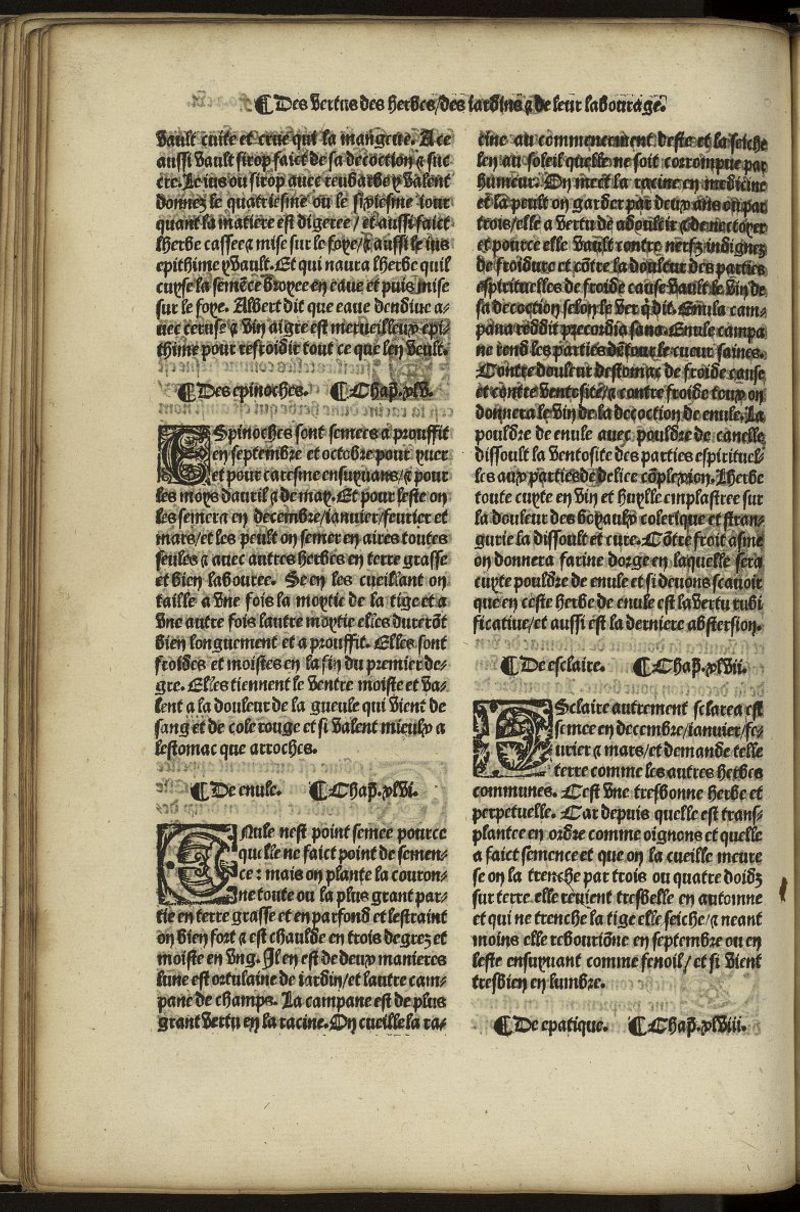 ¶ Des vertus des herbes/des iardins ⁊ de leur labourage.
vault cuite et crue qui la mangeue. A ce
aussi vault sirop faict de sa decoction ⁊ suc
cre. Le ius ou sirop auec reubarbe y valent
donnez le quatriesme ou le sixiesme iour
quant la matiere est digeree / et aussi faict
lherbe cassee ⁊ mise sur le foye/⁊ aussi le ius
epithime y vault. Et qui naura lherbe quil
cuyse la semēce broyee en eaue et puis mise
sur le foye. Albert dit que eaue dendiue a⸗
uec ceruse ⁊ vin aigre est merueilleux epi⸗
thime pour refroidir tout ce que len veult.
¶ Des epinoches. ¶ Chap. xlv.
ESpinoches sont semees a prouffit
en septembre et octobre pour yuer
et pour caresme ensuyuans/⁊ pour
les moys dauril ⁊ de may. Et pour leste on
les semera en decembre/ianuier/feurier et
mars/et les peult on semer en aires toutes
seules ⁊ auec autres herbes en terre grasse
et bien labouree. Se en les cueillant on
taille a vne fois la moytie de la tige et a
vne autre fois lautre moytie elles durerōt
bien longuement et a prouffit. Elles sont
froides et moistes en la fin du premier de⸗
gre. Elles tiennent le ventre moiste et va⸗
lent a la douleur de la gueule qui vient de
sang et de cole rouge et si valent mieulx a
lestomac que arroches.
¶ De enule. ¶ Chap. xlvi.
ENule nest point semee pource
quelle ne faict point de semen⸗
ce : mais on plante la couron⸗
ne toute ou la plus grant par⸗
tie en terre grasse et en parfond et lestraint
on bien fort ⁊ est chaulde en trois degrez et
moiste en vng. Il en est de deux manieres
lune est ortulaine de iardin/et lautre cam⸗
pane de champs. La campane est de plus
grant vertu en la racine. On cueille la ra⸗
cine au commencement deste et la seiche
len au soleil quelle ne soit corrompue par
humeur. On mect la racine en medicine
et la peult on garder par deux ans ou par
trois/elle a vertu de adoulcir ⁊ de nectoyer
et pource elle vault contre nerfz indignez
de froidure et cōtre la douleur des parties
espirituelles de froide cause vault le vin de
sa decoction selon le ver q̄ dit. Enula cam⸗
pana reddit precordia sana. Enule campa
ne rend les parties dessoubz le cueur saines.
Contre douleur destomac de froide cause
et contre ventosite/⁊ contre froide toux on
donnera le vin de la decoction de enule. La
pouldre de enule auec pouldre de canelle
dissoult la ventosite des parties espirituel⸗
les aux parties de delice cōplexion. Lherbe
toute cuyte en vin et huylle emplastree sur
la douleur des boyaulx colerique et stran⸗
gurie la dissoult et cure. Cōtre froit asme
on donnera farine dorge en laquelle sera
cuyte pouldre de enule et si deuons scauoir
que en ceste herbe de enule est la vertu rubi
ficatiue/et aussi est la derniere abstersion.
¶ De esclaire. ¶ Chap. xlvii.
ESclaire autrement sclarea est
semee en decembre/ianuier/fe⸗
urier ⁊ mars/et demande telle
terre comme les autres herbes
communes. Cest vne tresbonne herbe et
perpetuelle. Car depuis quelle est trans⸗
plantee en ordre comme oignons et quelle
a faict semence et que on la cueille meure
se on la trenche par trois ou quatre doidz
sur terre elle reuient tresbelle en automne
et qui ne trenche la tige elle seiche/⁊ neant
moins elle rebouriōne en septembre ou en
leste ensuyuant comme fenoil/ et si vient
tresbien en lumbre.
¶ De epatique. ¶ Chap. xlviii.